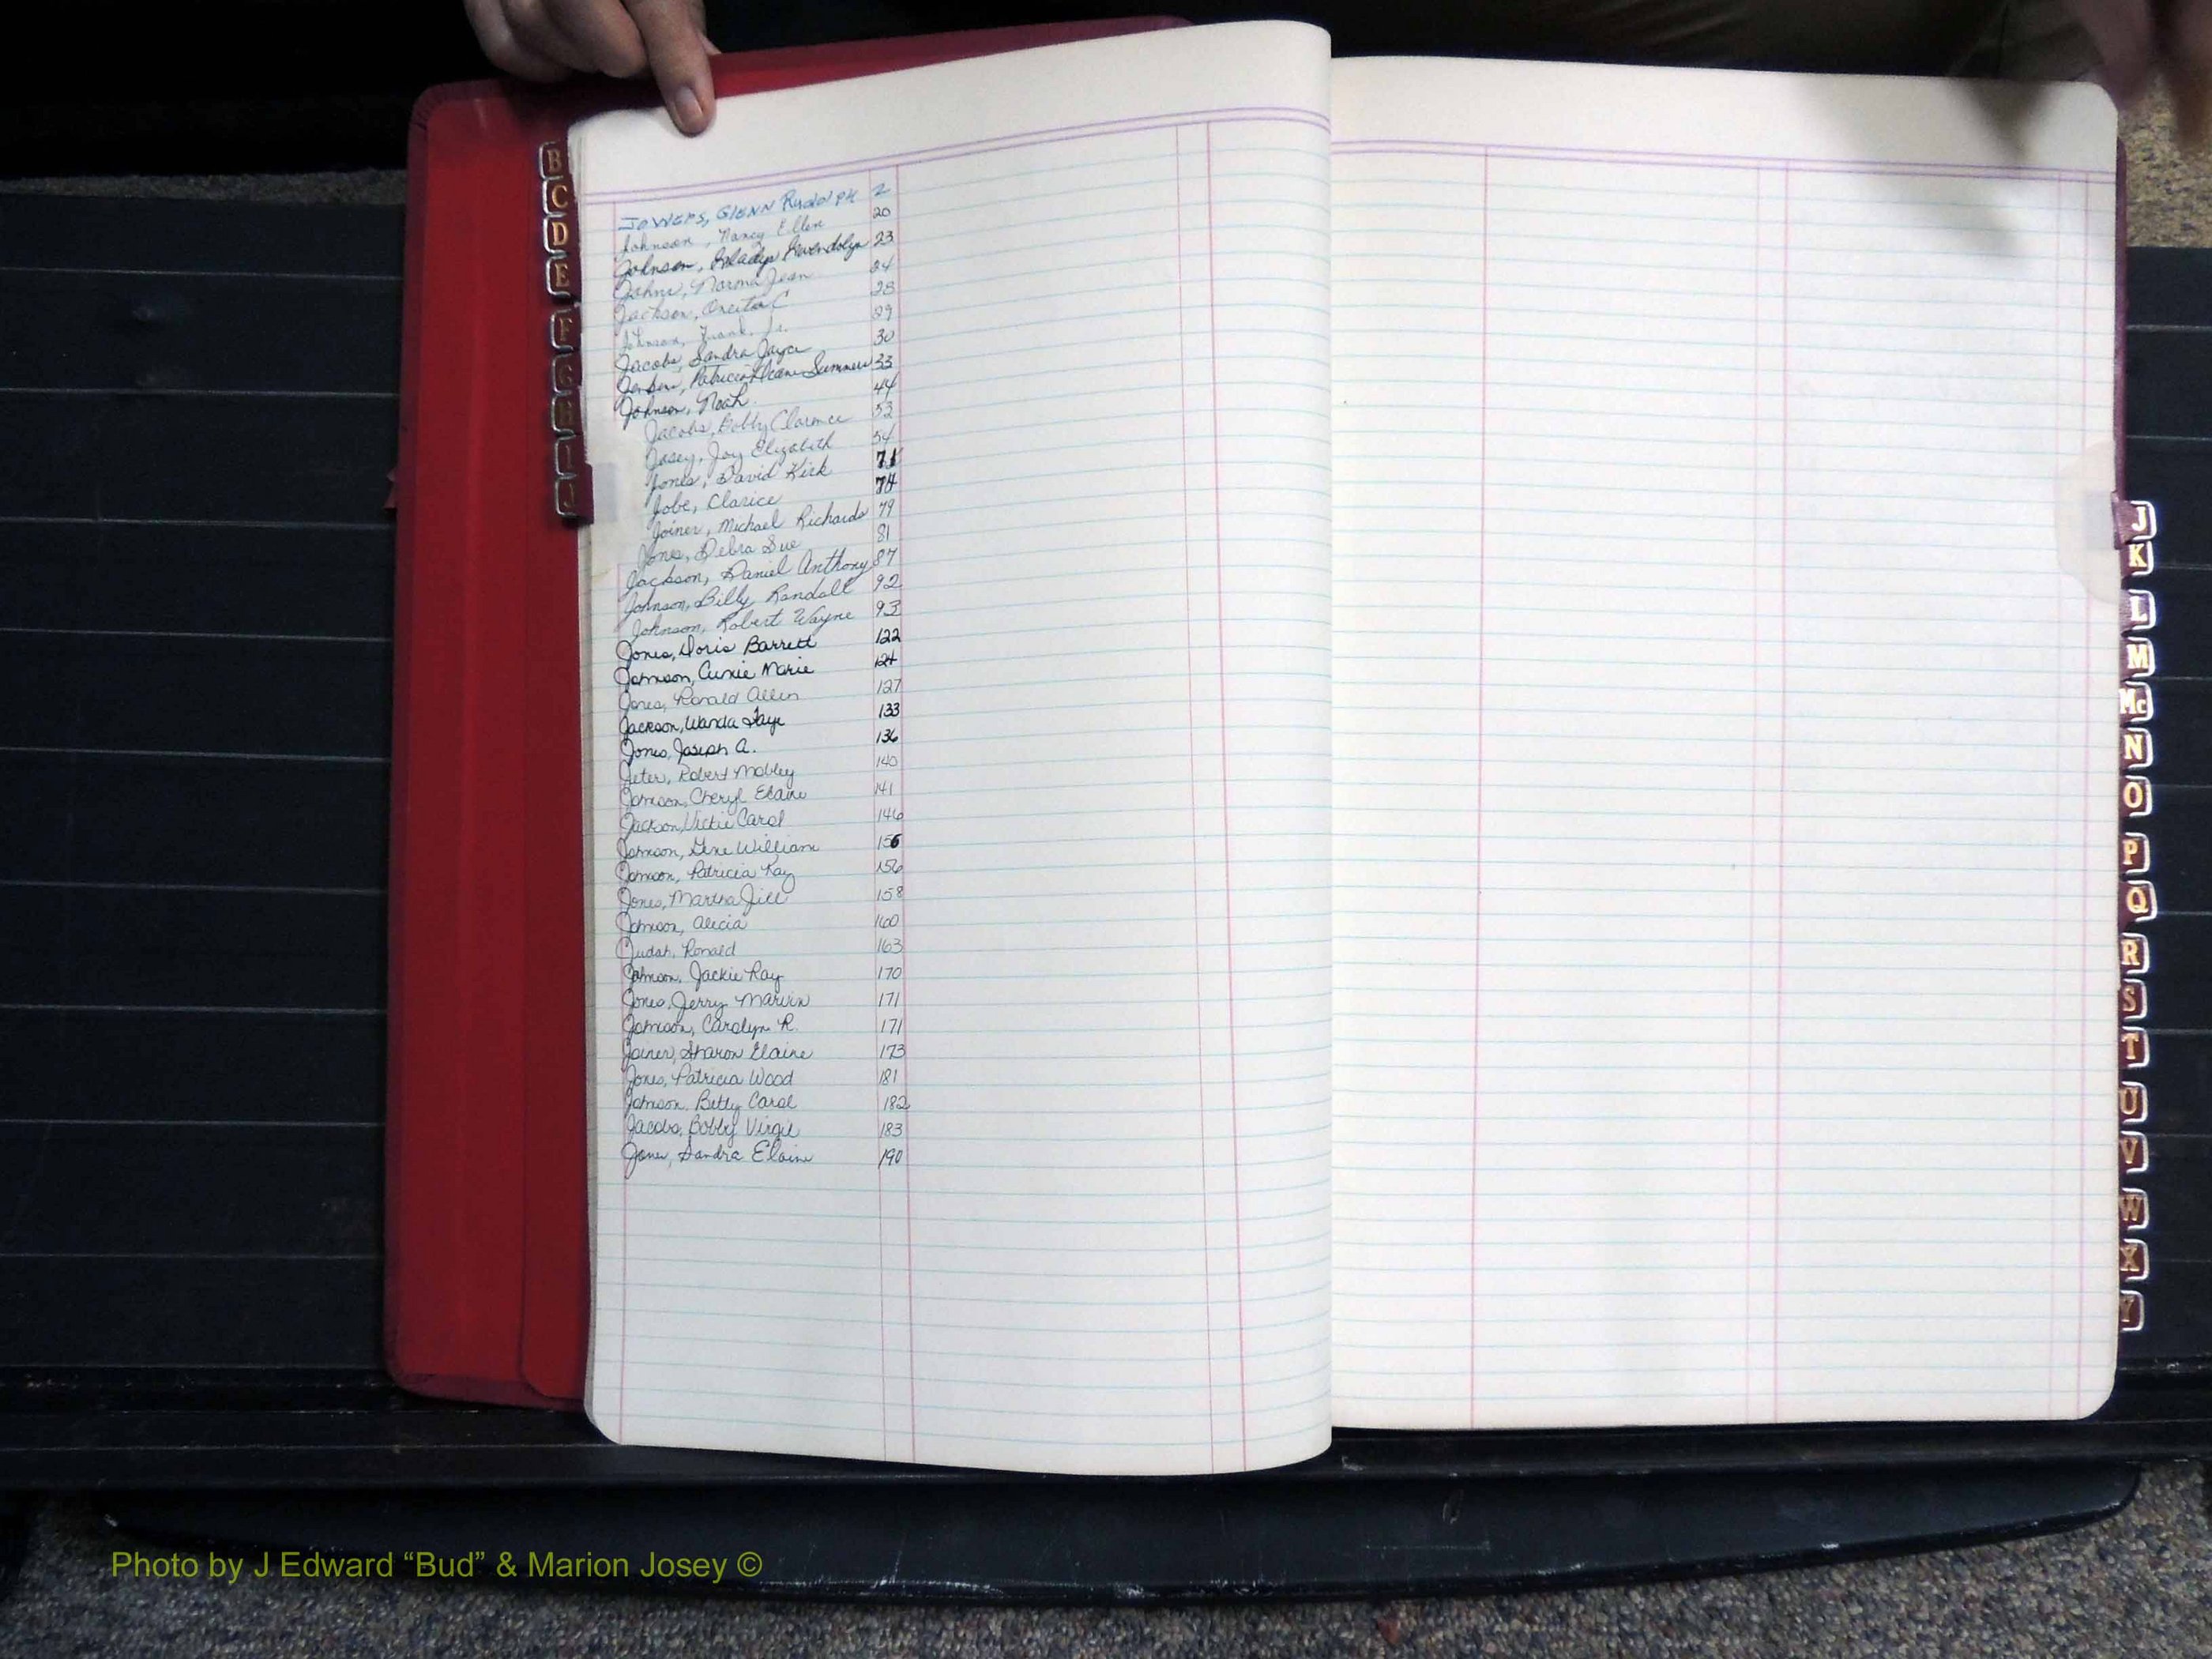 B
C
D
E
F
G
H
I
J
JOWERS, GLENN RudolPH 2
Johnson, Nancy Ellen 20
Johnson, Gladys Gwendolyn 23
Johns, Norma Jean 24
Jackson, Oneita C 28
Johnson, Frank, Jr. 29
Jacobs, Sandra Jayce 30
Patricia Summers 33
Johnson, Noah 44
Jacobs, Bobby Clarence 52
Josey, Joy Elizabeth 54
Jones, David Kirk 71
Jobe, Clarice 74
Joiner, Michael Richards 79
Jones, Debra Sue 81
Jackson, Daniel Anthony 87
Johnson, Billy Randall 92
Johnson, Robert Wayne 93
Jones, Doris Barrett 122
Johnson, Marie 124
Jones, Ronald Allen 127
Jackson, Wanda Faye 133
Jones, Joseph A. 136
Jeter, Robert Mobley 140
Johnson, Cheryl Elaine 141
Jackson, Vickie Carol 146
Johnson, Gene William 156
Johnson, Patricia Kay 156
Jones, Martha Jill 158
Johnson, Alicia 160
Judah, Ronald 163
Johnson, Jackie Ray 170
Jones, Jerry Marvin 171
Johnson, Carolyn R. 171
Joiner, Sharon Elaine 173
Jones, Patricia Wood 181
Johnson, Betty Carol 182
Jacobs, Bobby Virgil 183
Jones, Sandra Elaine 190
J
K
L
M
Mc
N
O
P
Q
R
S
T
U
V
W
X
Y
Photo by J Edward “Bud” & Marion Josey ©